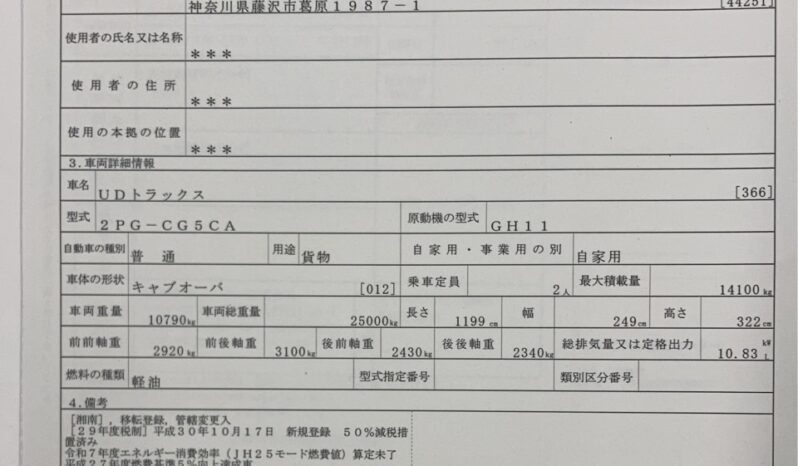 神奈川県藤沢市葛原1987-1 [44251]
使用者の氏名又は名称 ***
使用者の住所 ***
使用の本拠の位置 ***
3.車両詳細情報
車名 UDトラックス [366]
型式 2PG-CG5CA 原動機の型式 GH11
自動車の種別 普通 用途 貨物 自家用・事業用の別 自家用
車体の形状 キャブオーバ [012] 乗車定員 2人 最大積載量 14100kg
車両重量 10790kg 車両総重量 25000kg 長さ 1199cm 幅 249cm 高さ 322cm
前前軸重 2920kg 前後軸重 3100kg 後前軸重 2430kg 後後軸重 2340kg 総排気量又は定格出力 10.83 kW L
燃料の種類 軽油 型式指定番号 類別区分番号
4.備考
[湘南],移転登録,管轄変更入
[29年度税制]平成30年10月17日 新規登録 50%減税措
置済み
令和7年度エネルギー消費効率(JH25モード燃費値)算定未了
平成27年度燃費基準5%向上達成車